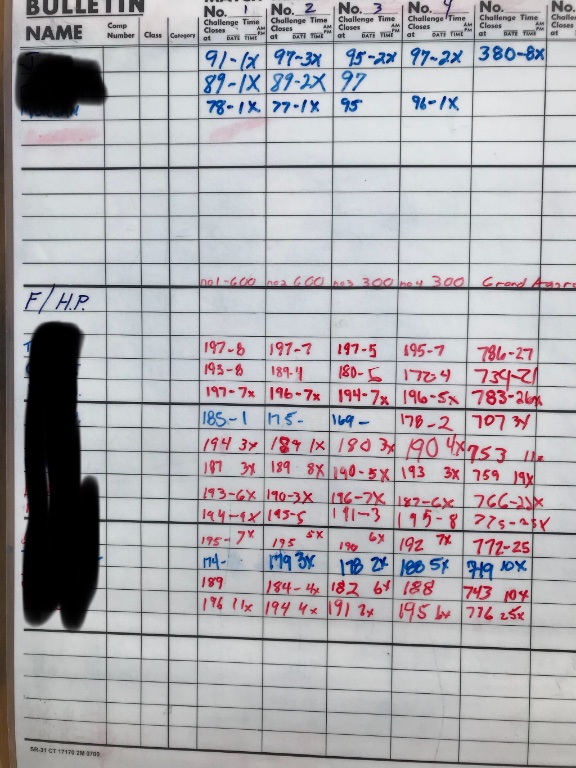 BULLETIN
No. 1 No. 2 No. 3 No. 4 No. No.
NAME Comp Number Class Category Challenge Time Closes at AM PM DATE TIME Challenge Time Closes at AM PM DATE TIME Challenge Time Closes at AM PM DATE TIME Challenge Time Closes at AM PM DATE TIME Challenge Time Closes at AM PM DATE TIME
91-1X 97-3X 95-2X 97-2X 380-8X
89-1X 89-2X 97
78-1X 77-1X 95 96-1X
no1-600 no2 600 no3 300 no4 300 Grand
F/H.P.
197-8 197-7 197-5 195-7 786-27
193-8 189-4 180-5 172-4 734-21
197-7x 196-7x 194-7x 196-5x 783-26x
185-1 175- 169- 178-2 707 3x
194 3x 189 1x 180 3x 190 4x 753
187 3x 189 8x 190-5x 193 3x 759 19x
193-6x 190-3X 196-7X 187-6X 766-22x
194-9x 193-5 191-3 195-8 775-25x
195-7x 195 5x 190 6x 192 7x 772-25
174- 179 3X 178 2X 188 5X 719 10X
189 184-4x 182 6x 188 743 10x
196 11x 194 4x 191 7x 195 6x 776 25x
SR-31 CT 17170 2M 0700